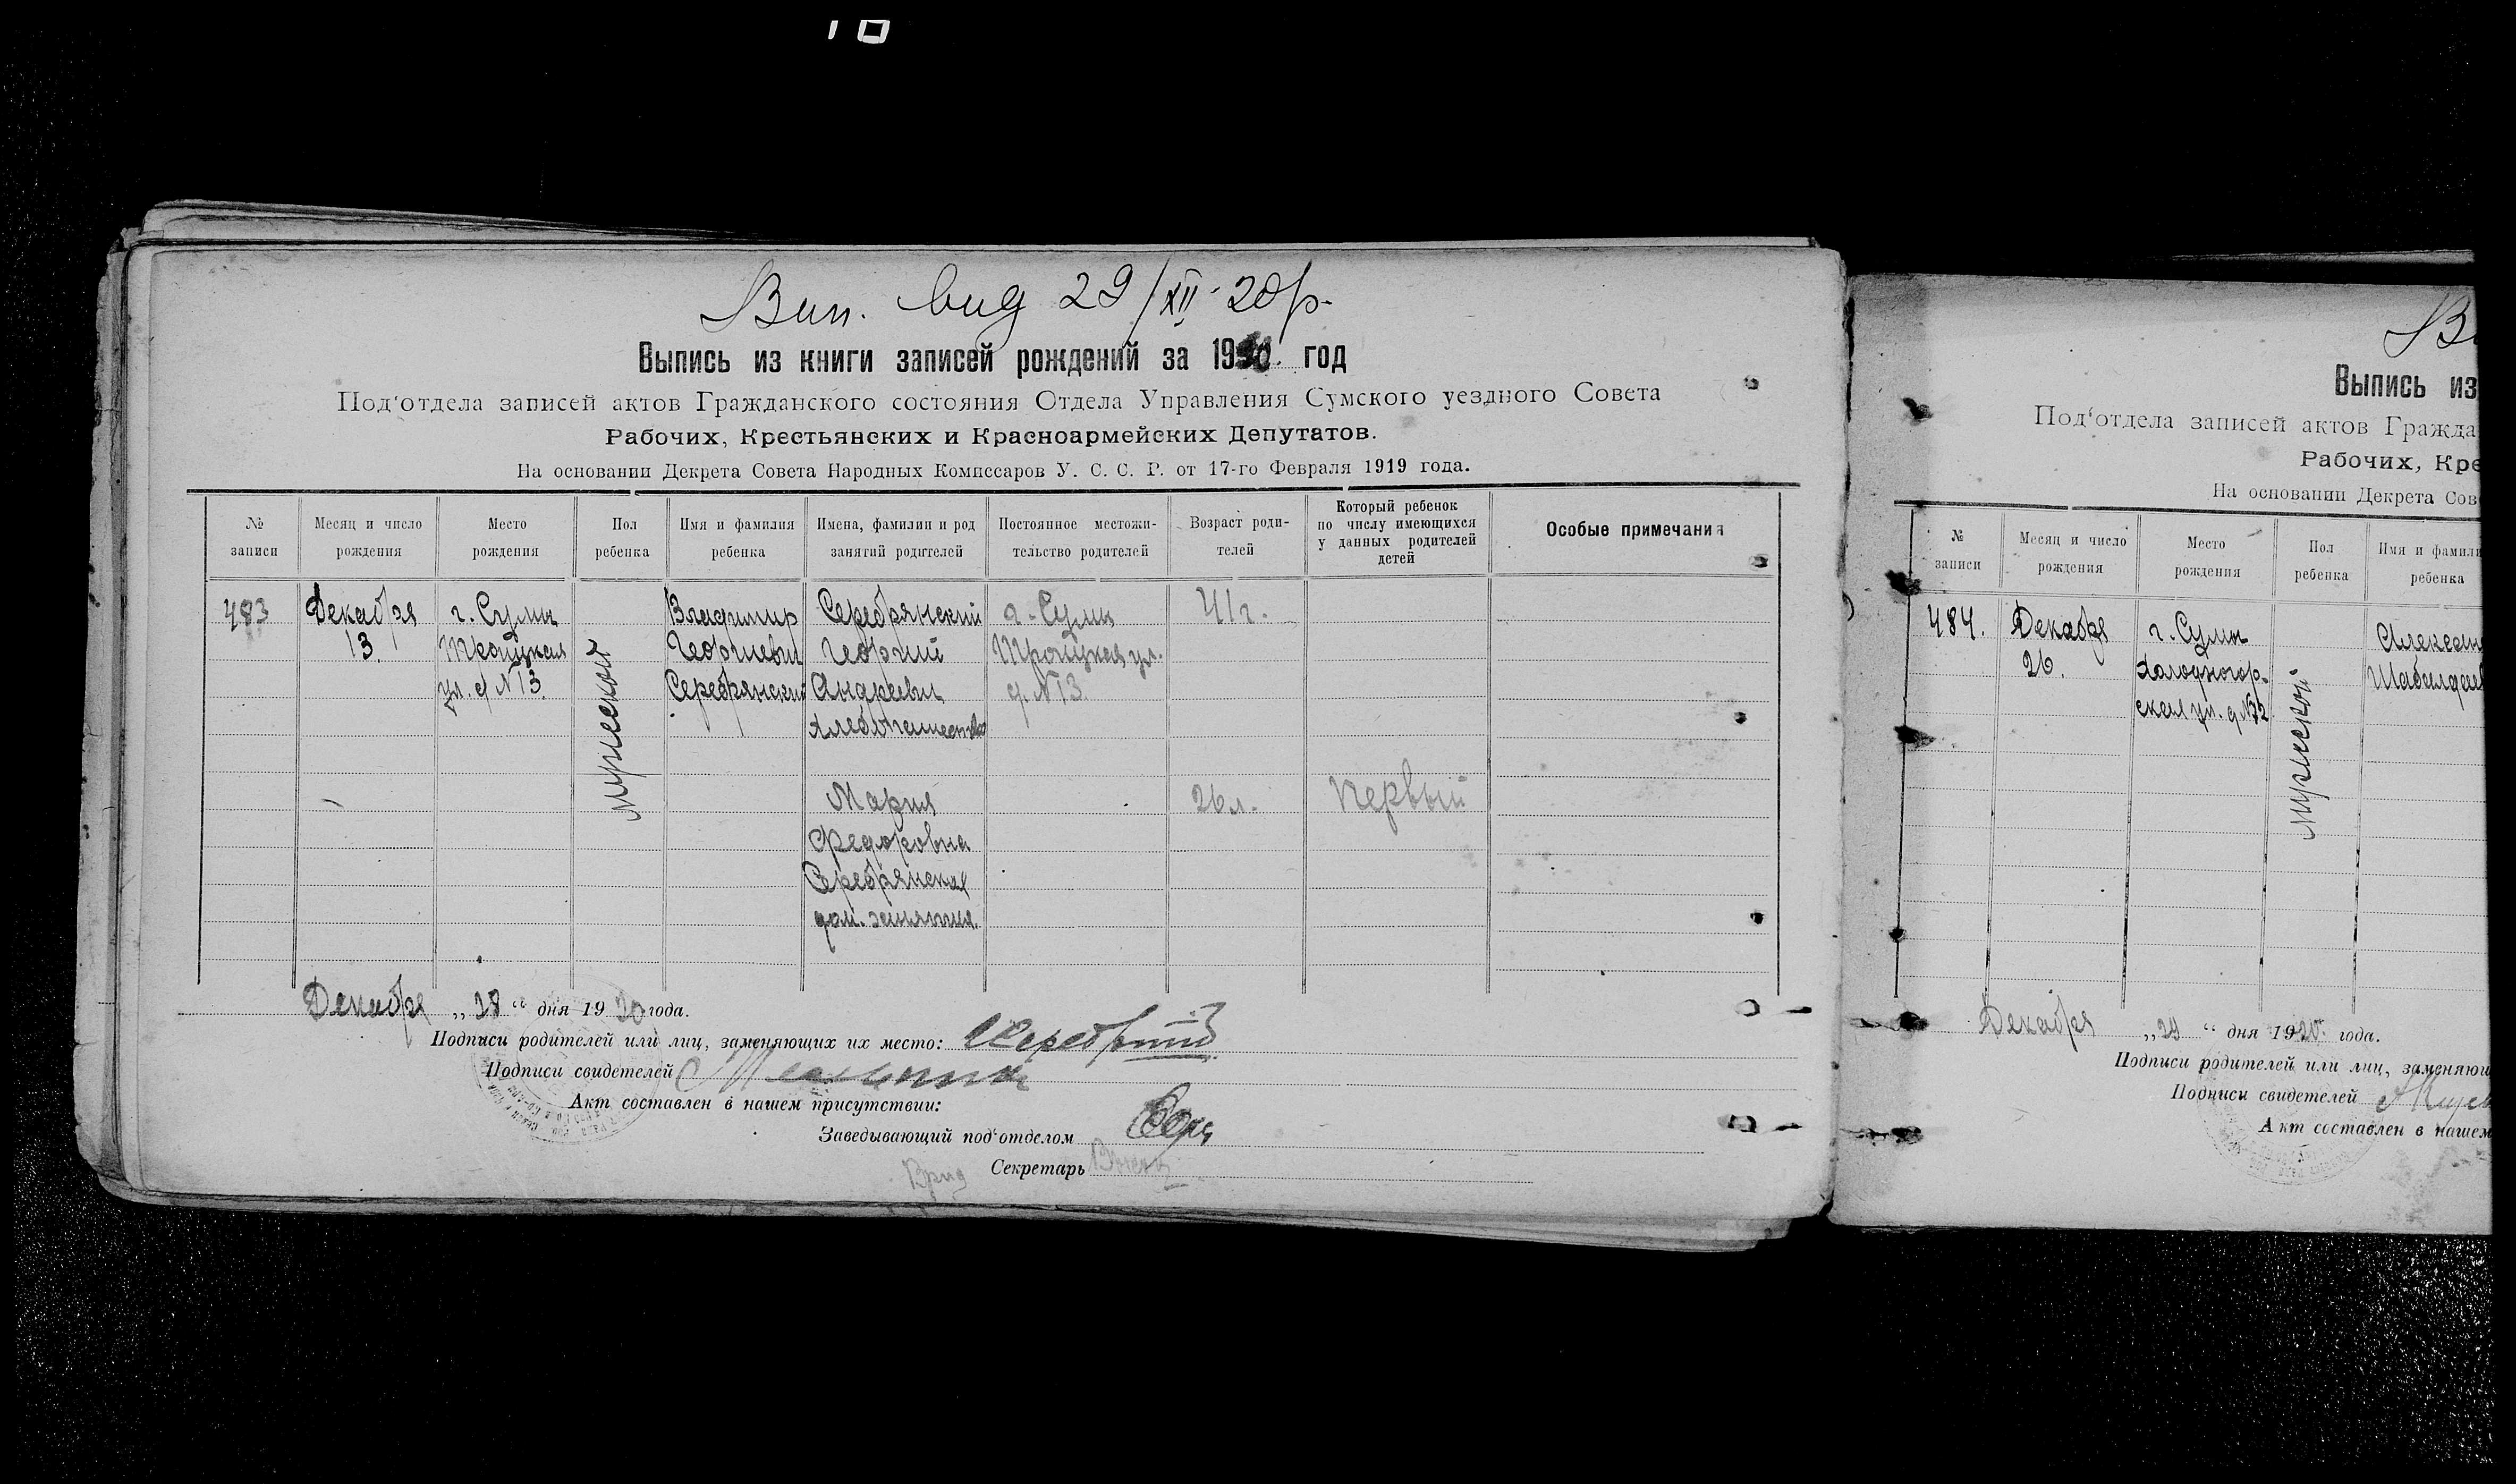 Вип. вид 29/XII-20 р.
Выпись из книги записей рождений за 1920 год
Под‘отдела записей актов Гражданского состояния Отдела Управления Сумского уездного Совета
Рабочих, Крестьянских и Красноармейских Депутатов.
На основании Декрета Совета Народных Комиссаров У. С. С. Р. от 17-го Февраля 1919 года.
№ записи
Месяц и число рождения
Место рождения
Пол ребенка
Имя и фамилия ребенка
Имена, фамилии и род занятий родителей
Постоянное местожительство родителей
Возраст родителей
Который ребенок по числу имеющихся у данных родителей детей
Особые примечания
483
Декабря
13.
г. Сумы
Троицкая
ул. д N 13.
мужеской
Владимир
Георгиевич
Серебрянский
Серебрянский
Георгий
Андреевич
хлебопашество
г. Сумы
Троицкая ул.
д. N 13.
41 г.
Мария
Федоровна
Серебрянская
дом. занятия.
26 л.
первый
Декабря „ 28 “ дня 1920 года.
Подписи родителей или лиц, заменяющих их место:
Подписи свидетелей
Акт составлен в нашем присутствии:
Заведывающий под‘отделом
Врид Секретарь
В
Выпись из
Под‘отдела записей актов Гражда
Рабочих, Кре
На основании Декрета Сов
№ записи
Месяц и число рождения
Место рождения
Пол ребенка
Имя и фамили
ребенка
484.
Декабря
26.
г. Сумы
Холодногор-
ская ул. д N 32
мужской
Алексан
Декабря „ 29 “ дня 1920 года.
Подписи родителей или лиц, заменяющ
Подписи свидетелей
Акт составлен в нашем